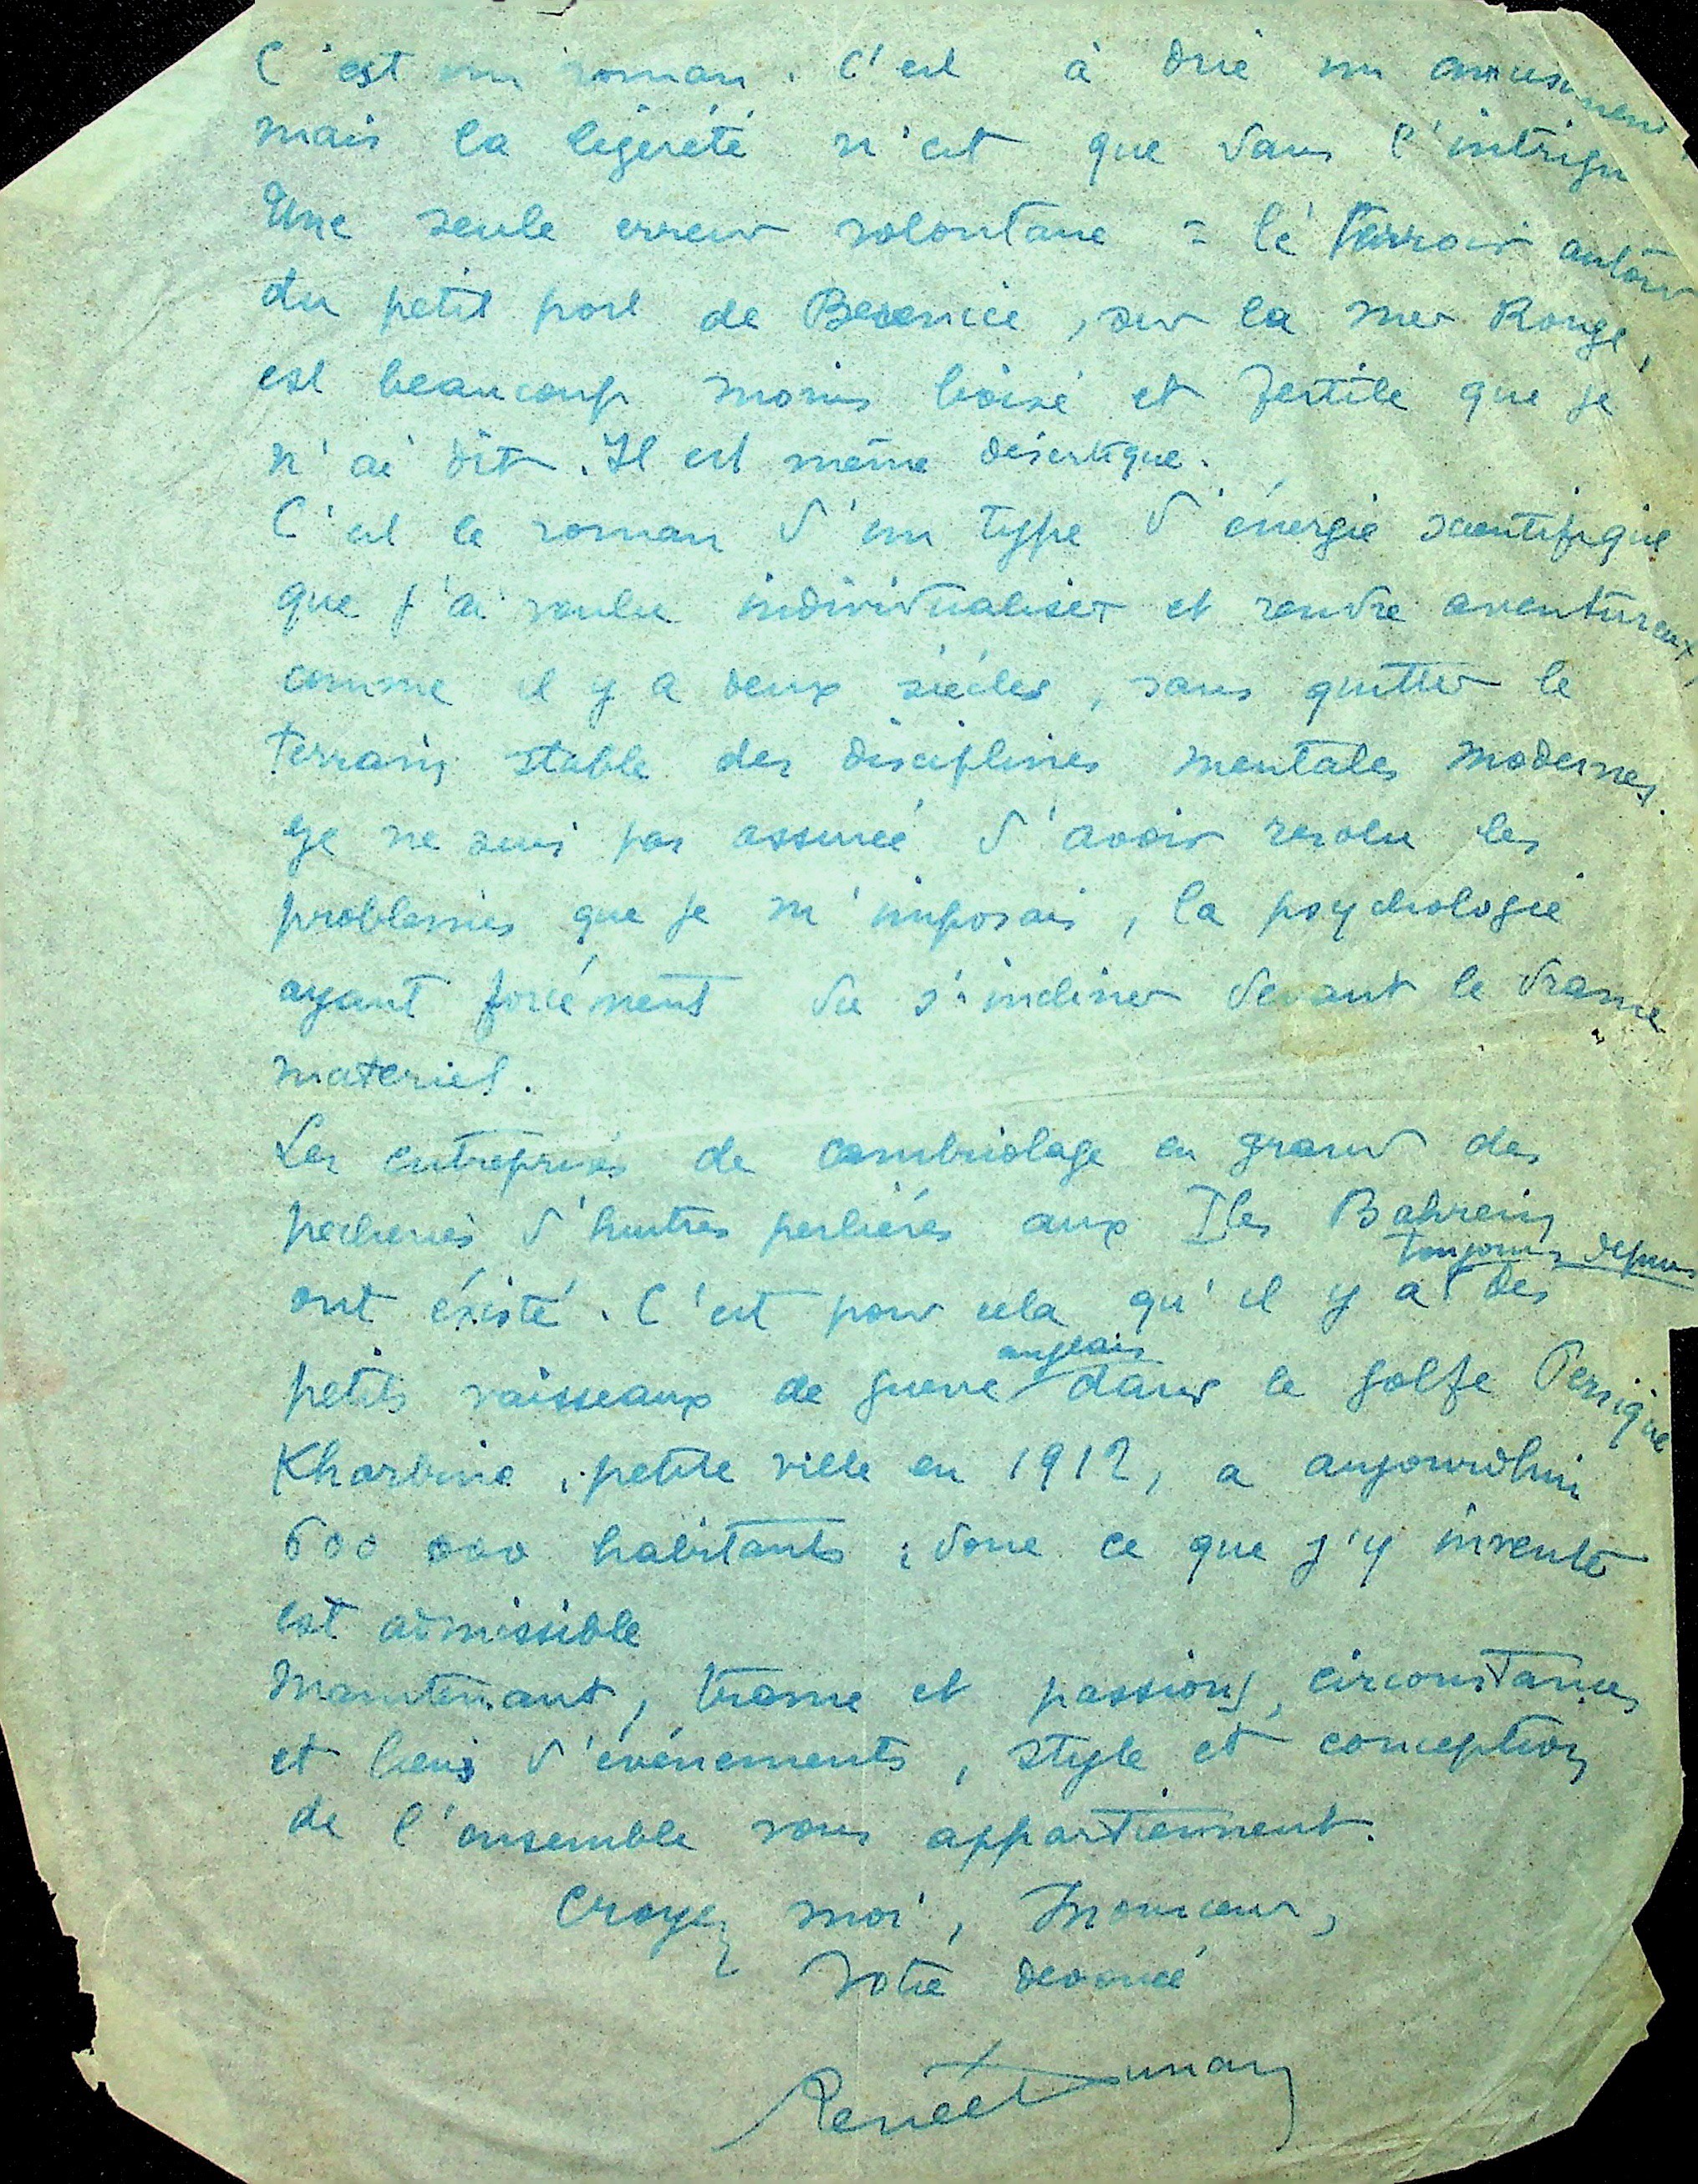 C'est un roman. C'est à dire un amusement,
mais la légéreté n'est que dans l'intrigue
Une seule erreur volontaire : le terroir autour
du petit port de Berenice, sur la mer Rouge,
est beaucoup moins boisé et fertile que je
n'ai dit. Il est même désertique.
C'est le roman d'un type d'énergie scientifique
que j'ai voulu individualiser et rendre aventureux,
comme il y a deux siècles, sans quitter le
terrain stable des disciplines mentales modernes.
Je ne suis pas assurée d'avoir resolu les
problemes que je m'imposais, la psychologie
ayant forcément du s'incliner devant le drame
materiel.
Les entreprises de cambriolage en grand des
pecheries d'huitres perlières aux Iles Bahrein
ont éxisté. C'est pour cela qu'il y a toujours depuis des
petits vaisseaux de guerre anglais dans le golfe Persique
Kharbine, petite ville en 1912, a aujourdhui
600 000 habitants ; donc ce que j'y invente
est admissible
Maintenant, trame et passions, circonstances
et liens d'événements, style et conception
de l'ensemble vous appartiennent.
Croyez moi, Monsieur,
Votre devouée
Renée Dunan